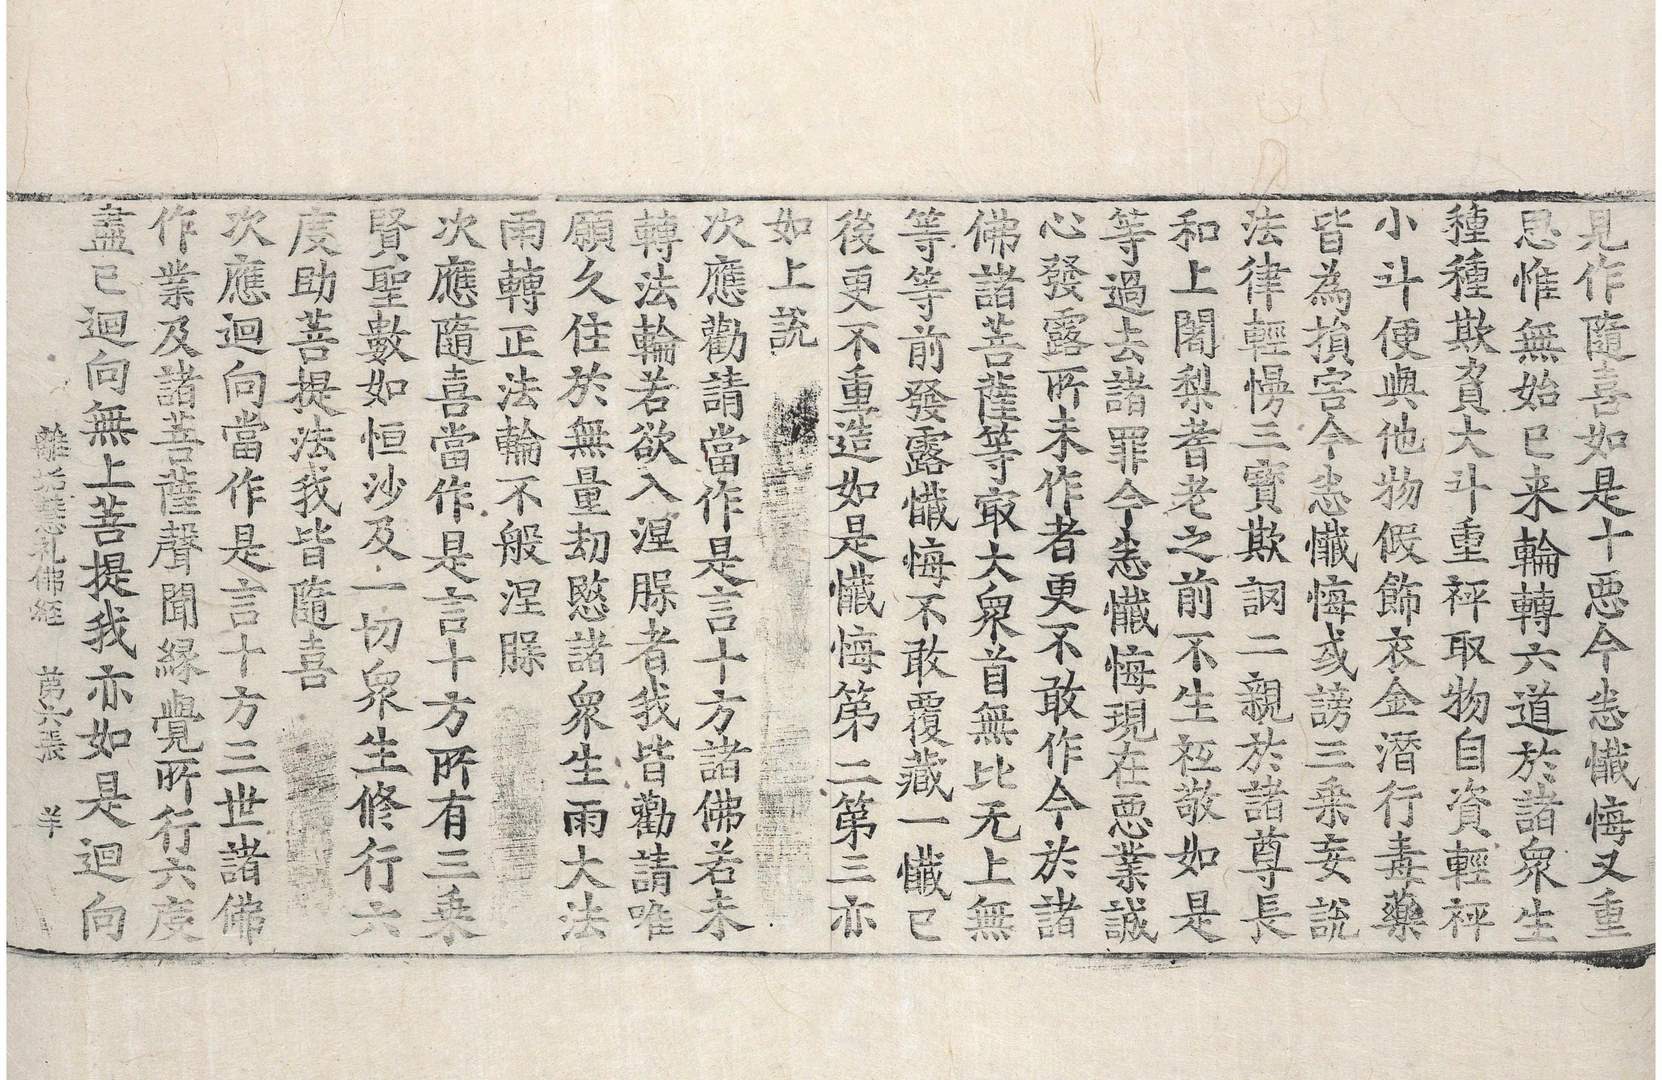 見作隨喜如是十惡今悉懺悔又重
思惟無始已来輪轉六道於諸衆生
種種欺負大斗重秤取物自資輕秤
小斗便與他物假飾衣金潛行毒藥
皆為損害今悉懺悔或謗三乗妄說
法律輕慢三寳欺誷二親於諸尊長
和上闍梨耆老之前不生祗敬如是
等過去諸罪今悉懺悔現在惡業誠
心發露所未作者更不敢作今於諸
佛諸菩薩等㝡大衆首無比无上無
等等前發露懺悔不敢覆藏一懺已
後更不重造如是懺悔第二第三亦
如上說
次應勸請當作是言十方諸佛若未
轉法輪若欲入涅槃者我皆勸請唯
願久住於無量劫愍諸衆生雨大法
雨轉正法輪不般涅槃
次應隨喜當作是言十方所有三乗
賢聖數如恒沙及一切衆生修行六
度助菩提法我皆隨喜
次應迴向當作是言十方三世諸佛
作業及諸菩薩聲聞縁覺所行六度
盡已迴向無上菩提我亦如是迴向
離垢慧礼佛經　第六張　羊